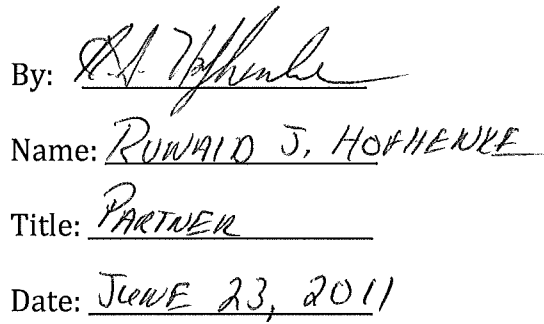 By: R.J. Hofhenke
Name: RONALD J. HOFHENKE
Title: PARTNER
Date: JUNE 23, 2011